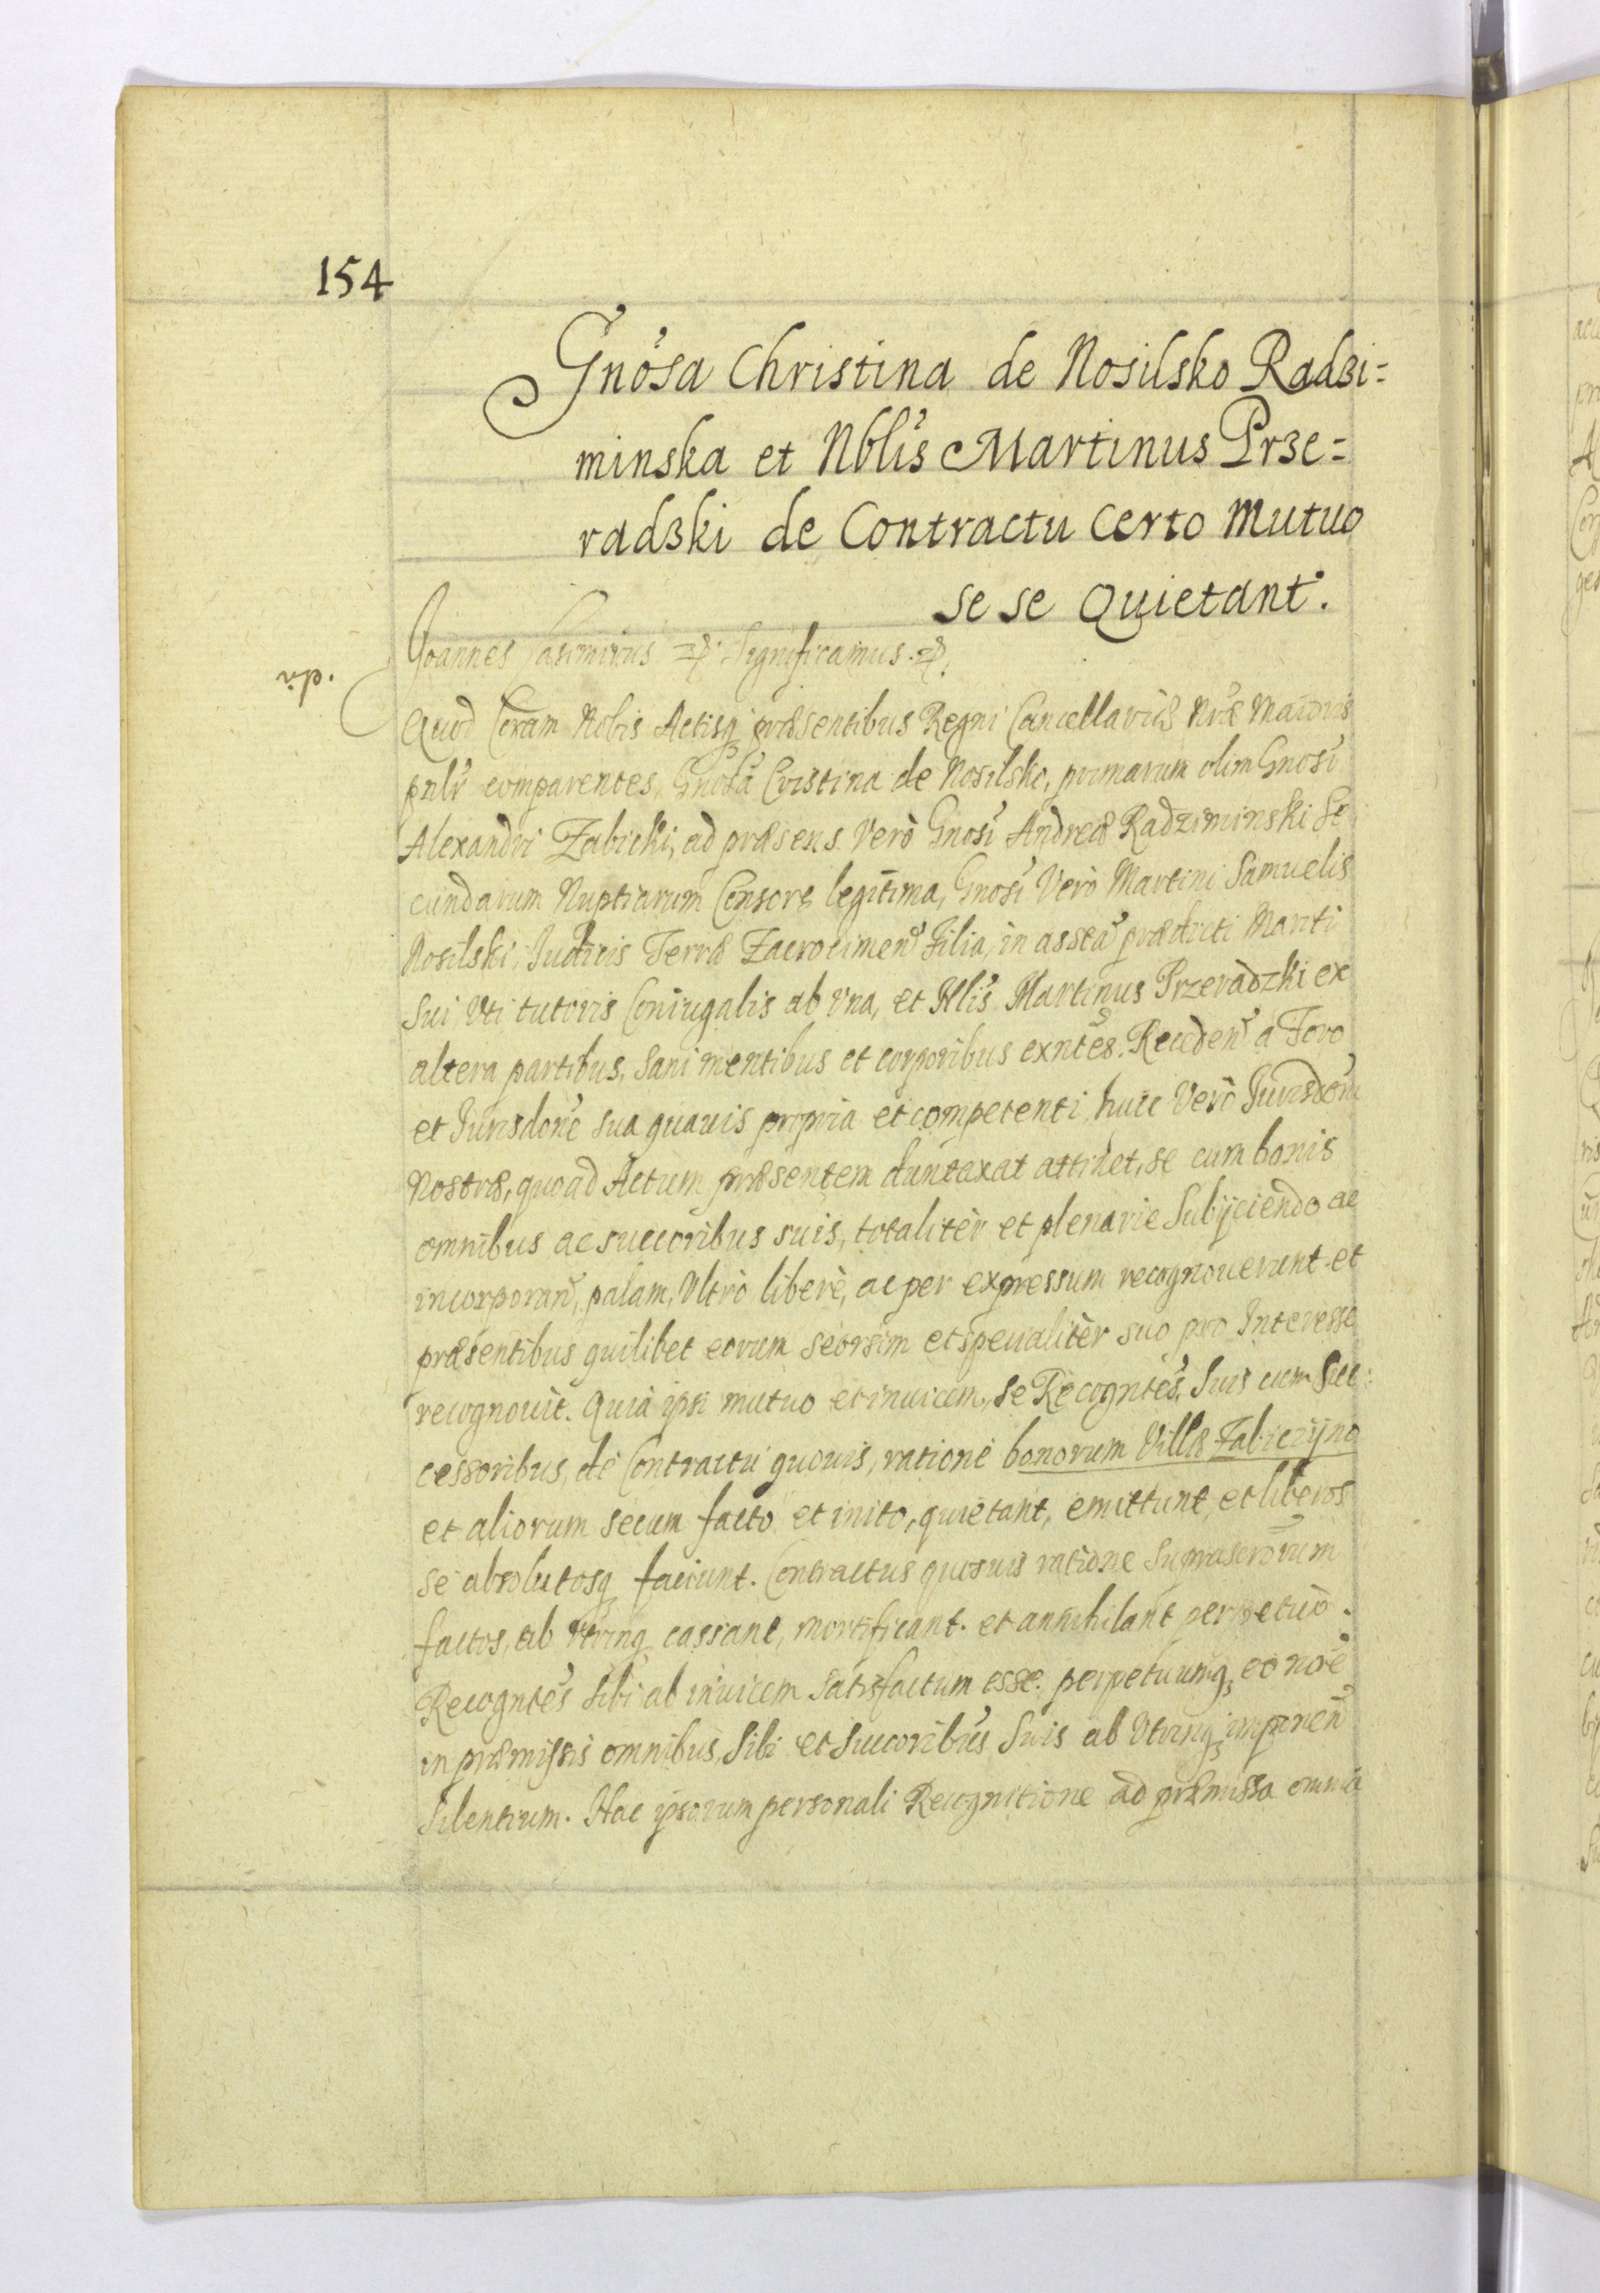 154
Gnõsa Christina de Nosilsko Radzi=
minska et Nblis Martinus Prze=
radzki de Contractu Certo Mutuo
se se Quietant.
Joannes Casimirus Significamus.
Quod Coram Nobis Actisq præsentibus Regni Cancellariæ Nræ Maioris
pnlr comparentes, Gnosa Cristina de Nosilsko, primarum olim Gnosi
Alexandri Zabicki, ad præsens Verò Gnosi Andreæ Radziminski Se
cundarum Nuptiarum Consors legitima, Gnosi Verò Martini Samuelis
Nosilski Judicis Terræ Zacrocimen Filia, in assca prædicti Mariti
Sui Uti tutoris Coniugalis ab Vna, et Nlis Martinus Przeradzki ex
altera partibus, Sani mentibus et corporibus exntes. Receden a Foro
et Jurisdone sua quavis propria et competenti, huic Verò Jurisdoni
Nostræ, quoad Actum præsentem duntaxat attinet, se cum bonis
omnibus ac succoribus suis, totalitèr et plenarie Subijciendo ac
incorporan, palam, Ultrò liberè, ac per expressum recognouerunt et
præsentibus quilibet eorum seorsim et specialitèr suo pro Interesse
recognouit. Quia ipsi mutuo et inuicem, se Recogntes, Suis cum Suc
cessoribus, de Contractu quouis, ratione bonorum Villæ Zabiczyno
et aliorum secum facto et inito, quietant, emittunt, et liberos
se absolutosq faciunt. Contractus quosuis ratione Suprascrorum
factos, ab utrinq cassant, mortificant et annihilant perpetuò.
Recogntes Sibi ab inuicem Satisfactum esse. perpetuumq eo noe
in præmissis omnibus, Sibi et Succoribus Suis ab Utrinq imponen
Silentium. Hac ipsorum personali Recognitione ad præmissa omnia